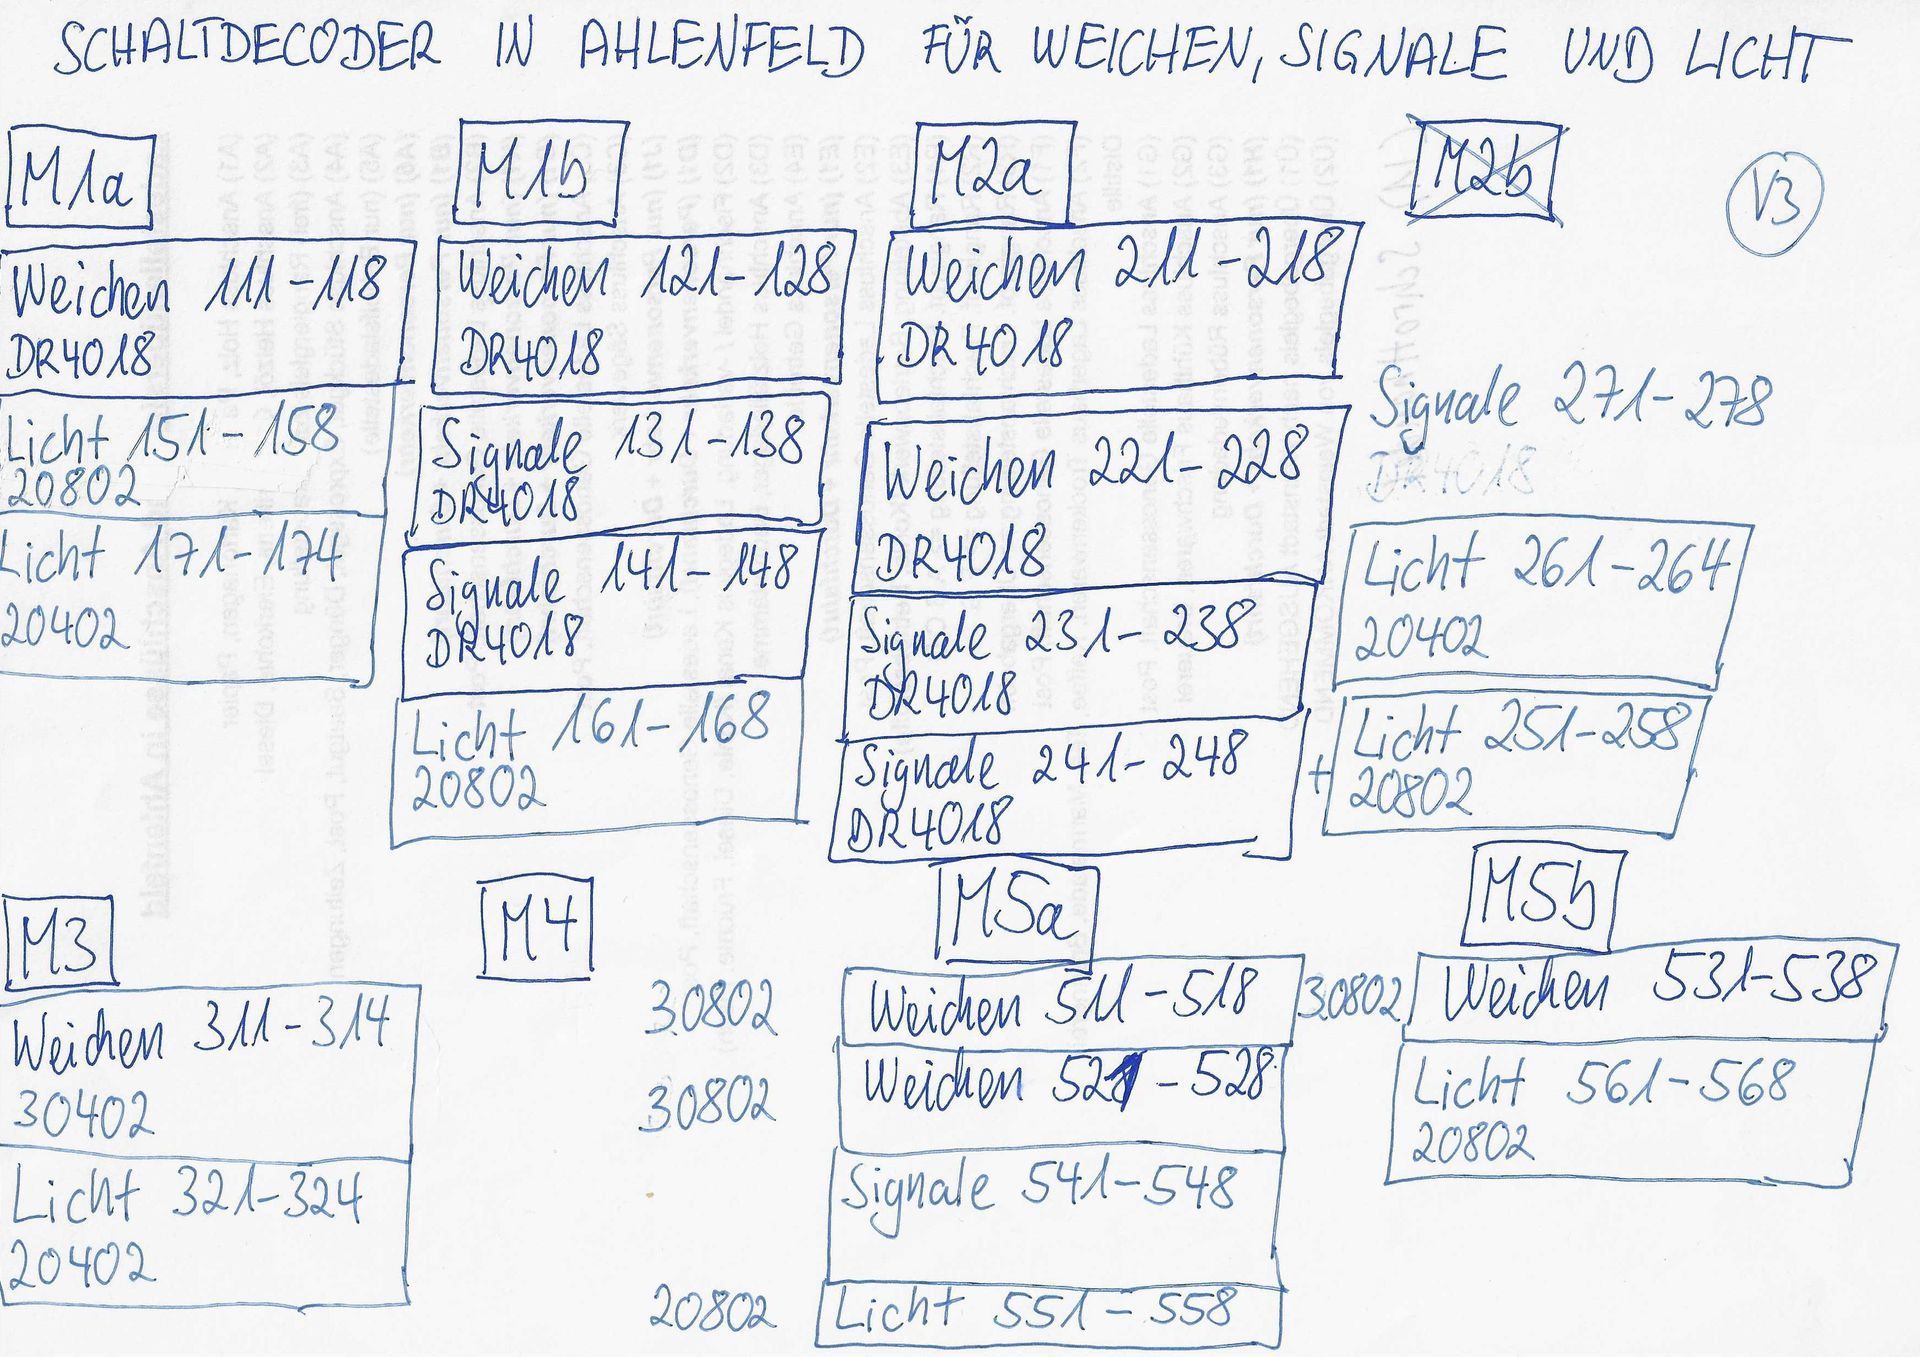 SCHALTDECODER IN AHLENFELD FÜR WEICHEN, SIGNALE UND LICHT
V3
M1a
Weichen 111-118
DR4018
Licht 151-158
20802
Licht 171-174
20402
M1b
Weichen 121-128
DR4018
Signale 131-138
DR4018
Signale 141-148
DR4018
Licht 161-168
20802
M2a
Weichen 211-218
DR4018
Weichen 221-228
DR4018
Signale 231-238
DR4018
Signale 241-248
DR4018
M2b
Signale 271-278
DR4018
Licht 261-264
20402
+ Licht 251-258
20802
M3
Weichen 311-314
30402
Licht 321-324
20402
M4
M5a
30802 Weichen 511-518
30802 Weichen 521-528
Signale 541-548
20802 Licht 551-558
M5b
30802 Weichen 531-538
Licht 561-568
20802